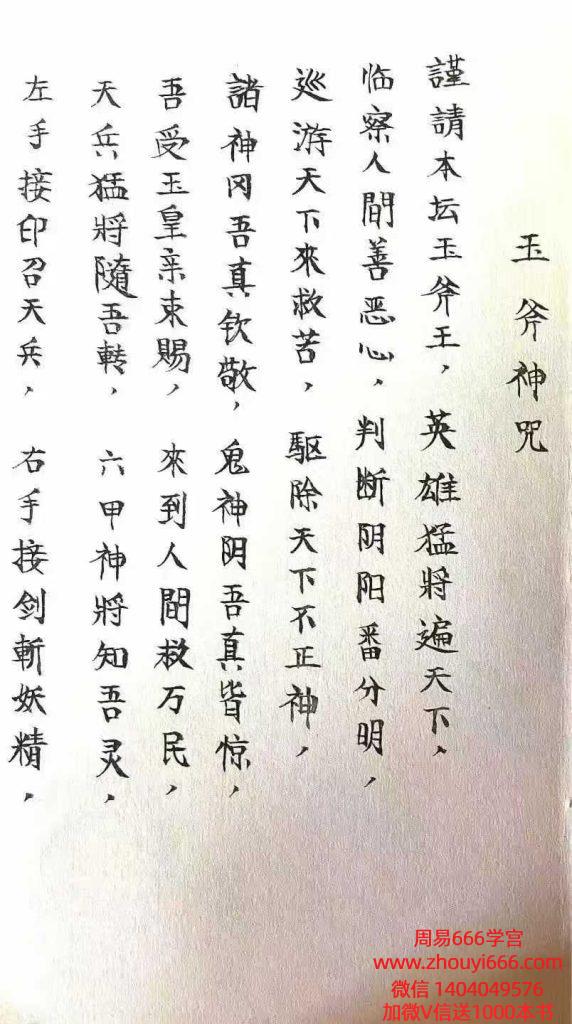 玉斧神咒
謹請本坛玉斧王，英雄猛將遍天下，
临察人間善恶心，判断阴阳番分明，
巡游天下來救苦，驱除天下不正神，
諸神冈吾真钦敬，鬼神阴吾真皆惊，
吾受玉皇亲束賜，來到人間救万民，
天兵猛將隨吾轉，六甲神將知吾灵，
左手接印召天兵，右手接剑斬妖精，
周易666学宫
www.zhouyi666.com
微信 1404049576
加微V信送1000本书